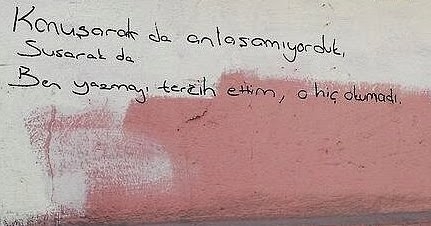 Konuşarak da anlaşamıyorduk,
Susarak da
Ben yazmayı tercih ettim, o hiç okumadı.